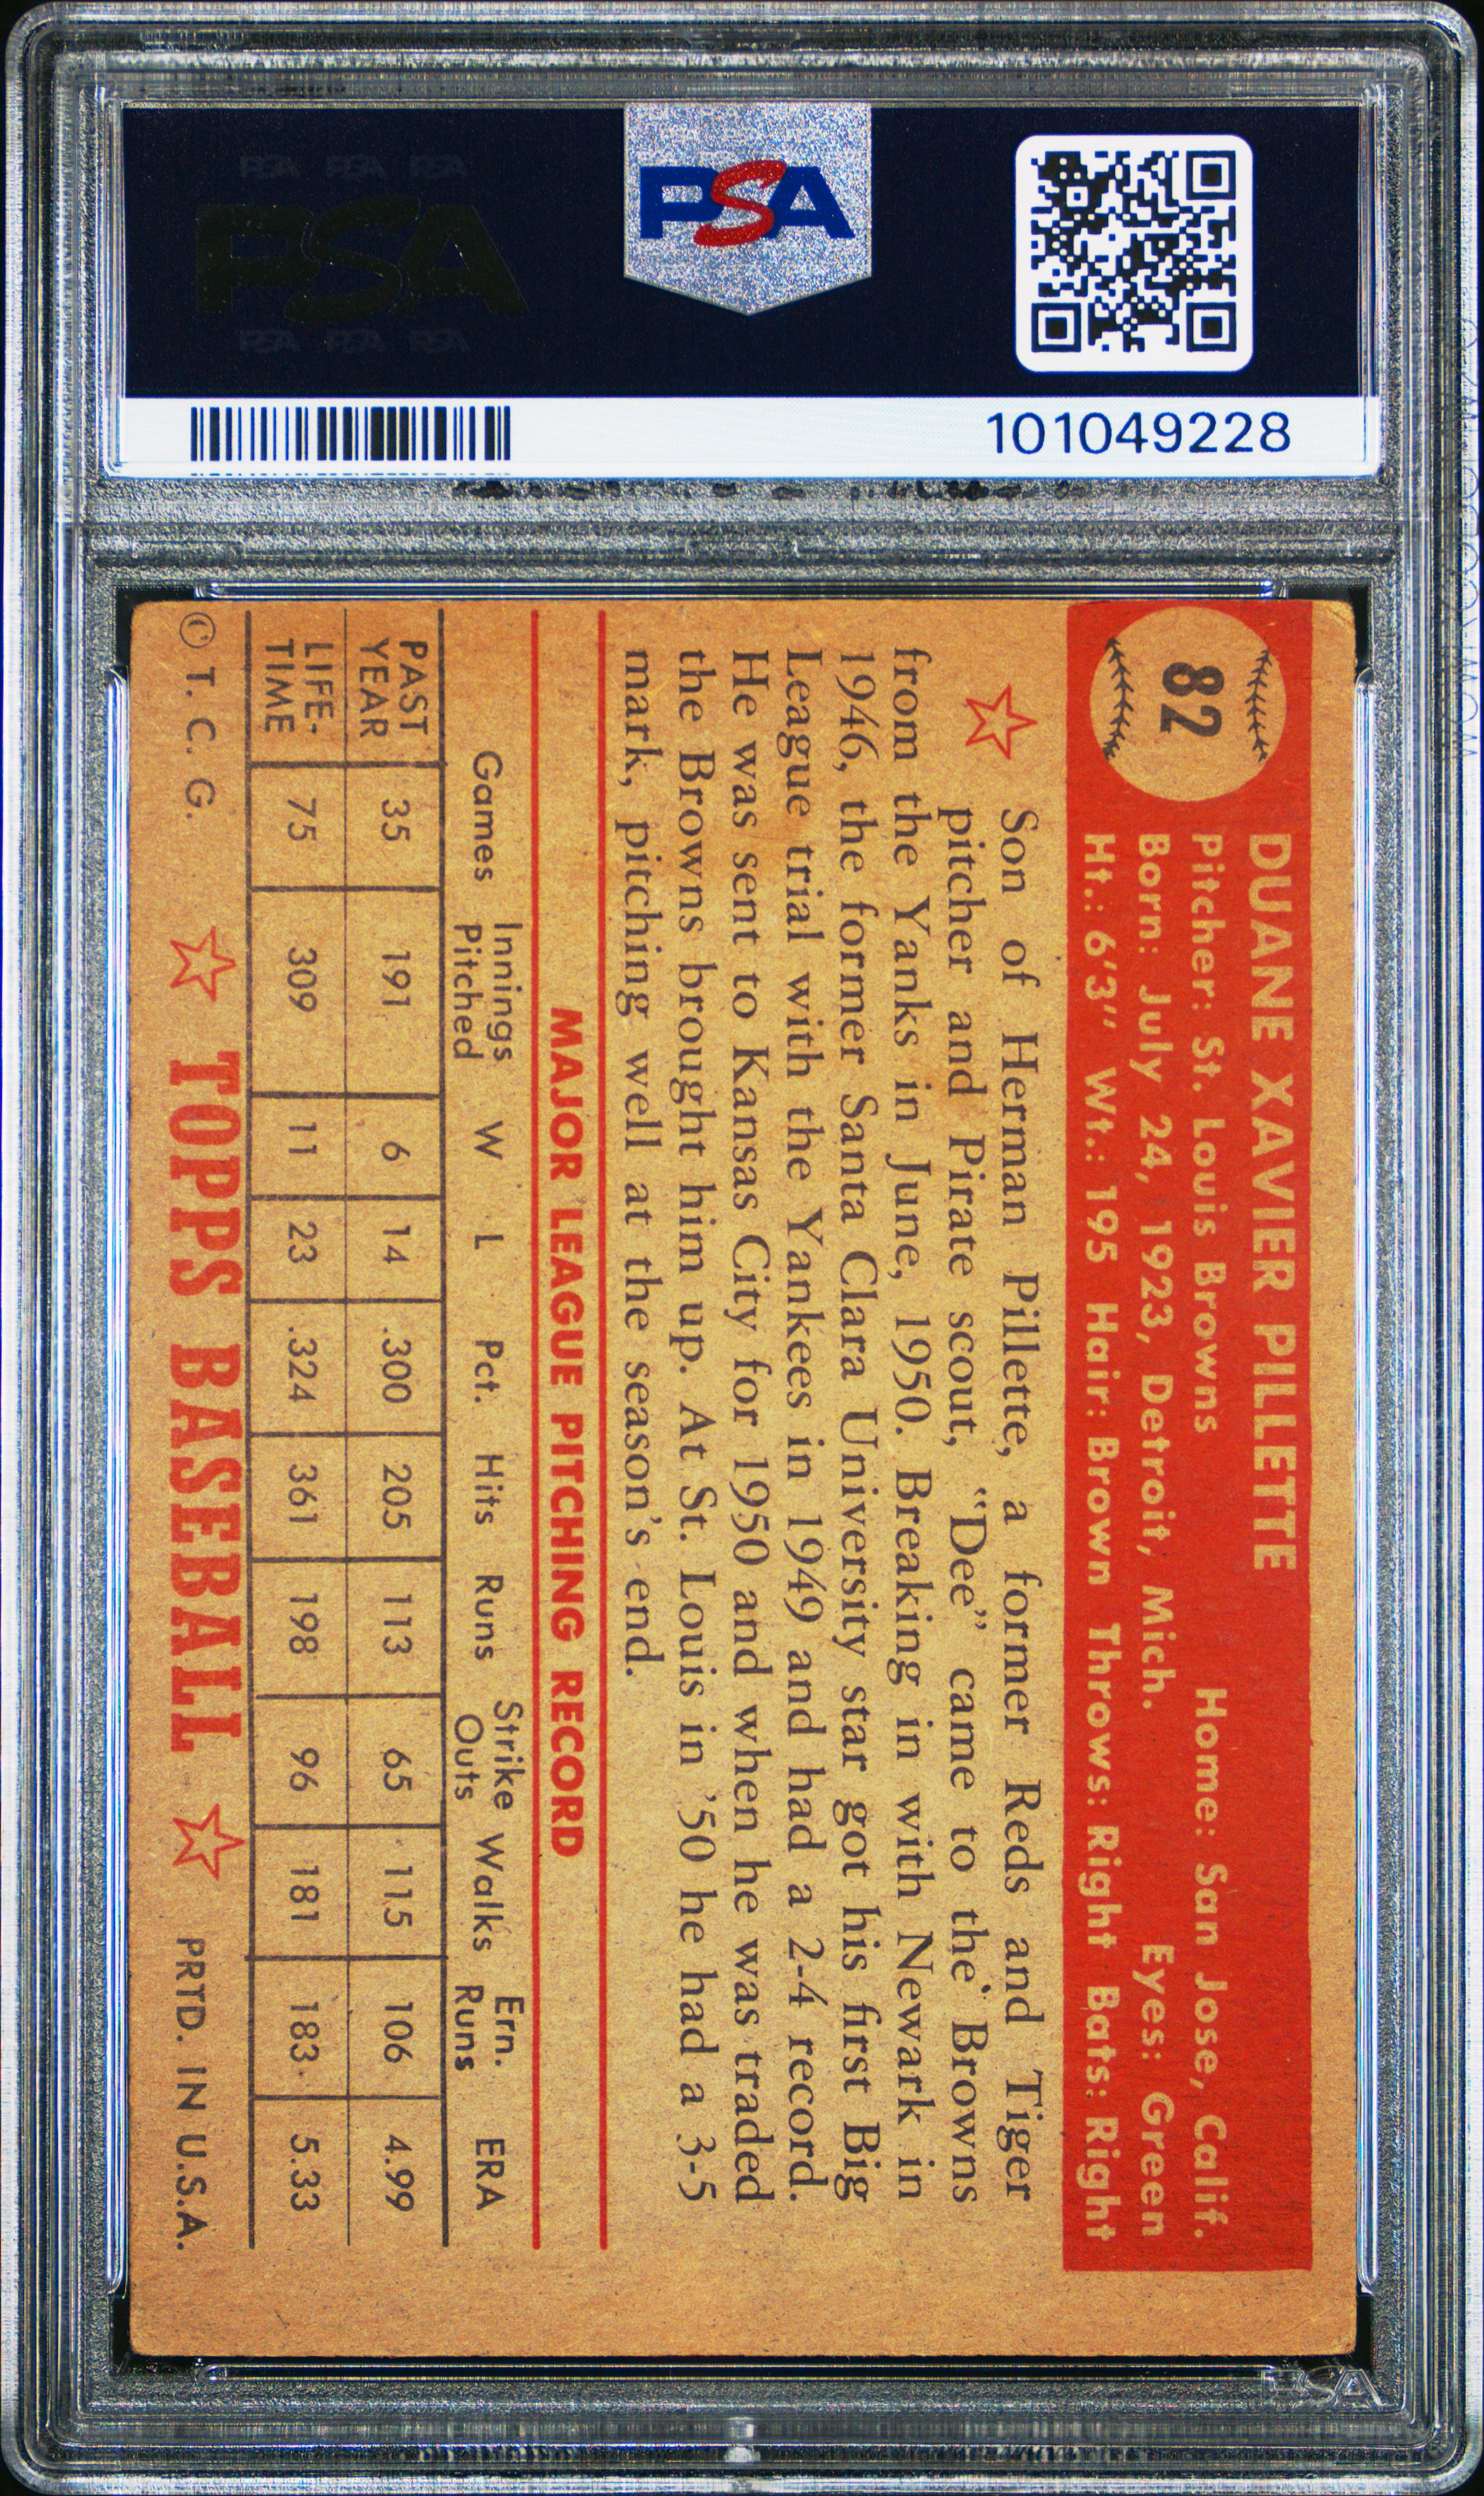 PSA
PSA PSA PSA
PSA
PSA PSA PSA
101049228
82
DUANE XAVIER PILLETTE
Pitcher: St. Louis Browns Home: San Jose, Calif.
Born: July 24, 1923, Detroit, Mich. Eyes: Green
Ht.: 6'3" Wt.: 195 Hair: Brown Throws: Right Bats: Right
Son of Herman Pillette, a former Reds and Tiger
pitcher and Pirate scout, "Dee" came to the Browns
from the Yanks in June, 1950. Breaking in with Newark in
1946, the former Santa Clara University star got his first Big
League trial with the Yankees in 1949 and had a 2-4 record.
He was sent to Kansas City for 1950 and when he was traded
the Browns brought him up. At St. Louis in '50 he had a 3-5
mark, pitching well at the season's end.
MAJOR LEAGUE PITCHING RECORD
Games Innings Pitched W L Pct. Hits Runs Strike Outs Walks Ern. Runs ERA
PAST YEAR 35 191 6 14 .300 205 113 65 115 106 4.99
LIFE-TIME 75 309 11 23 .324 361 198 96 181 183 5.33
© T. C. G. TOPPS BASEBALL PRTD. IN U.S.A.
PSA